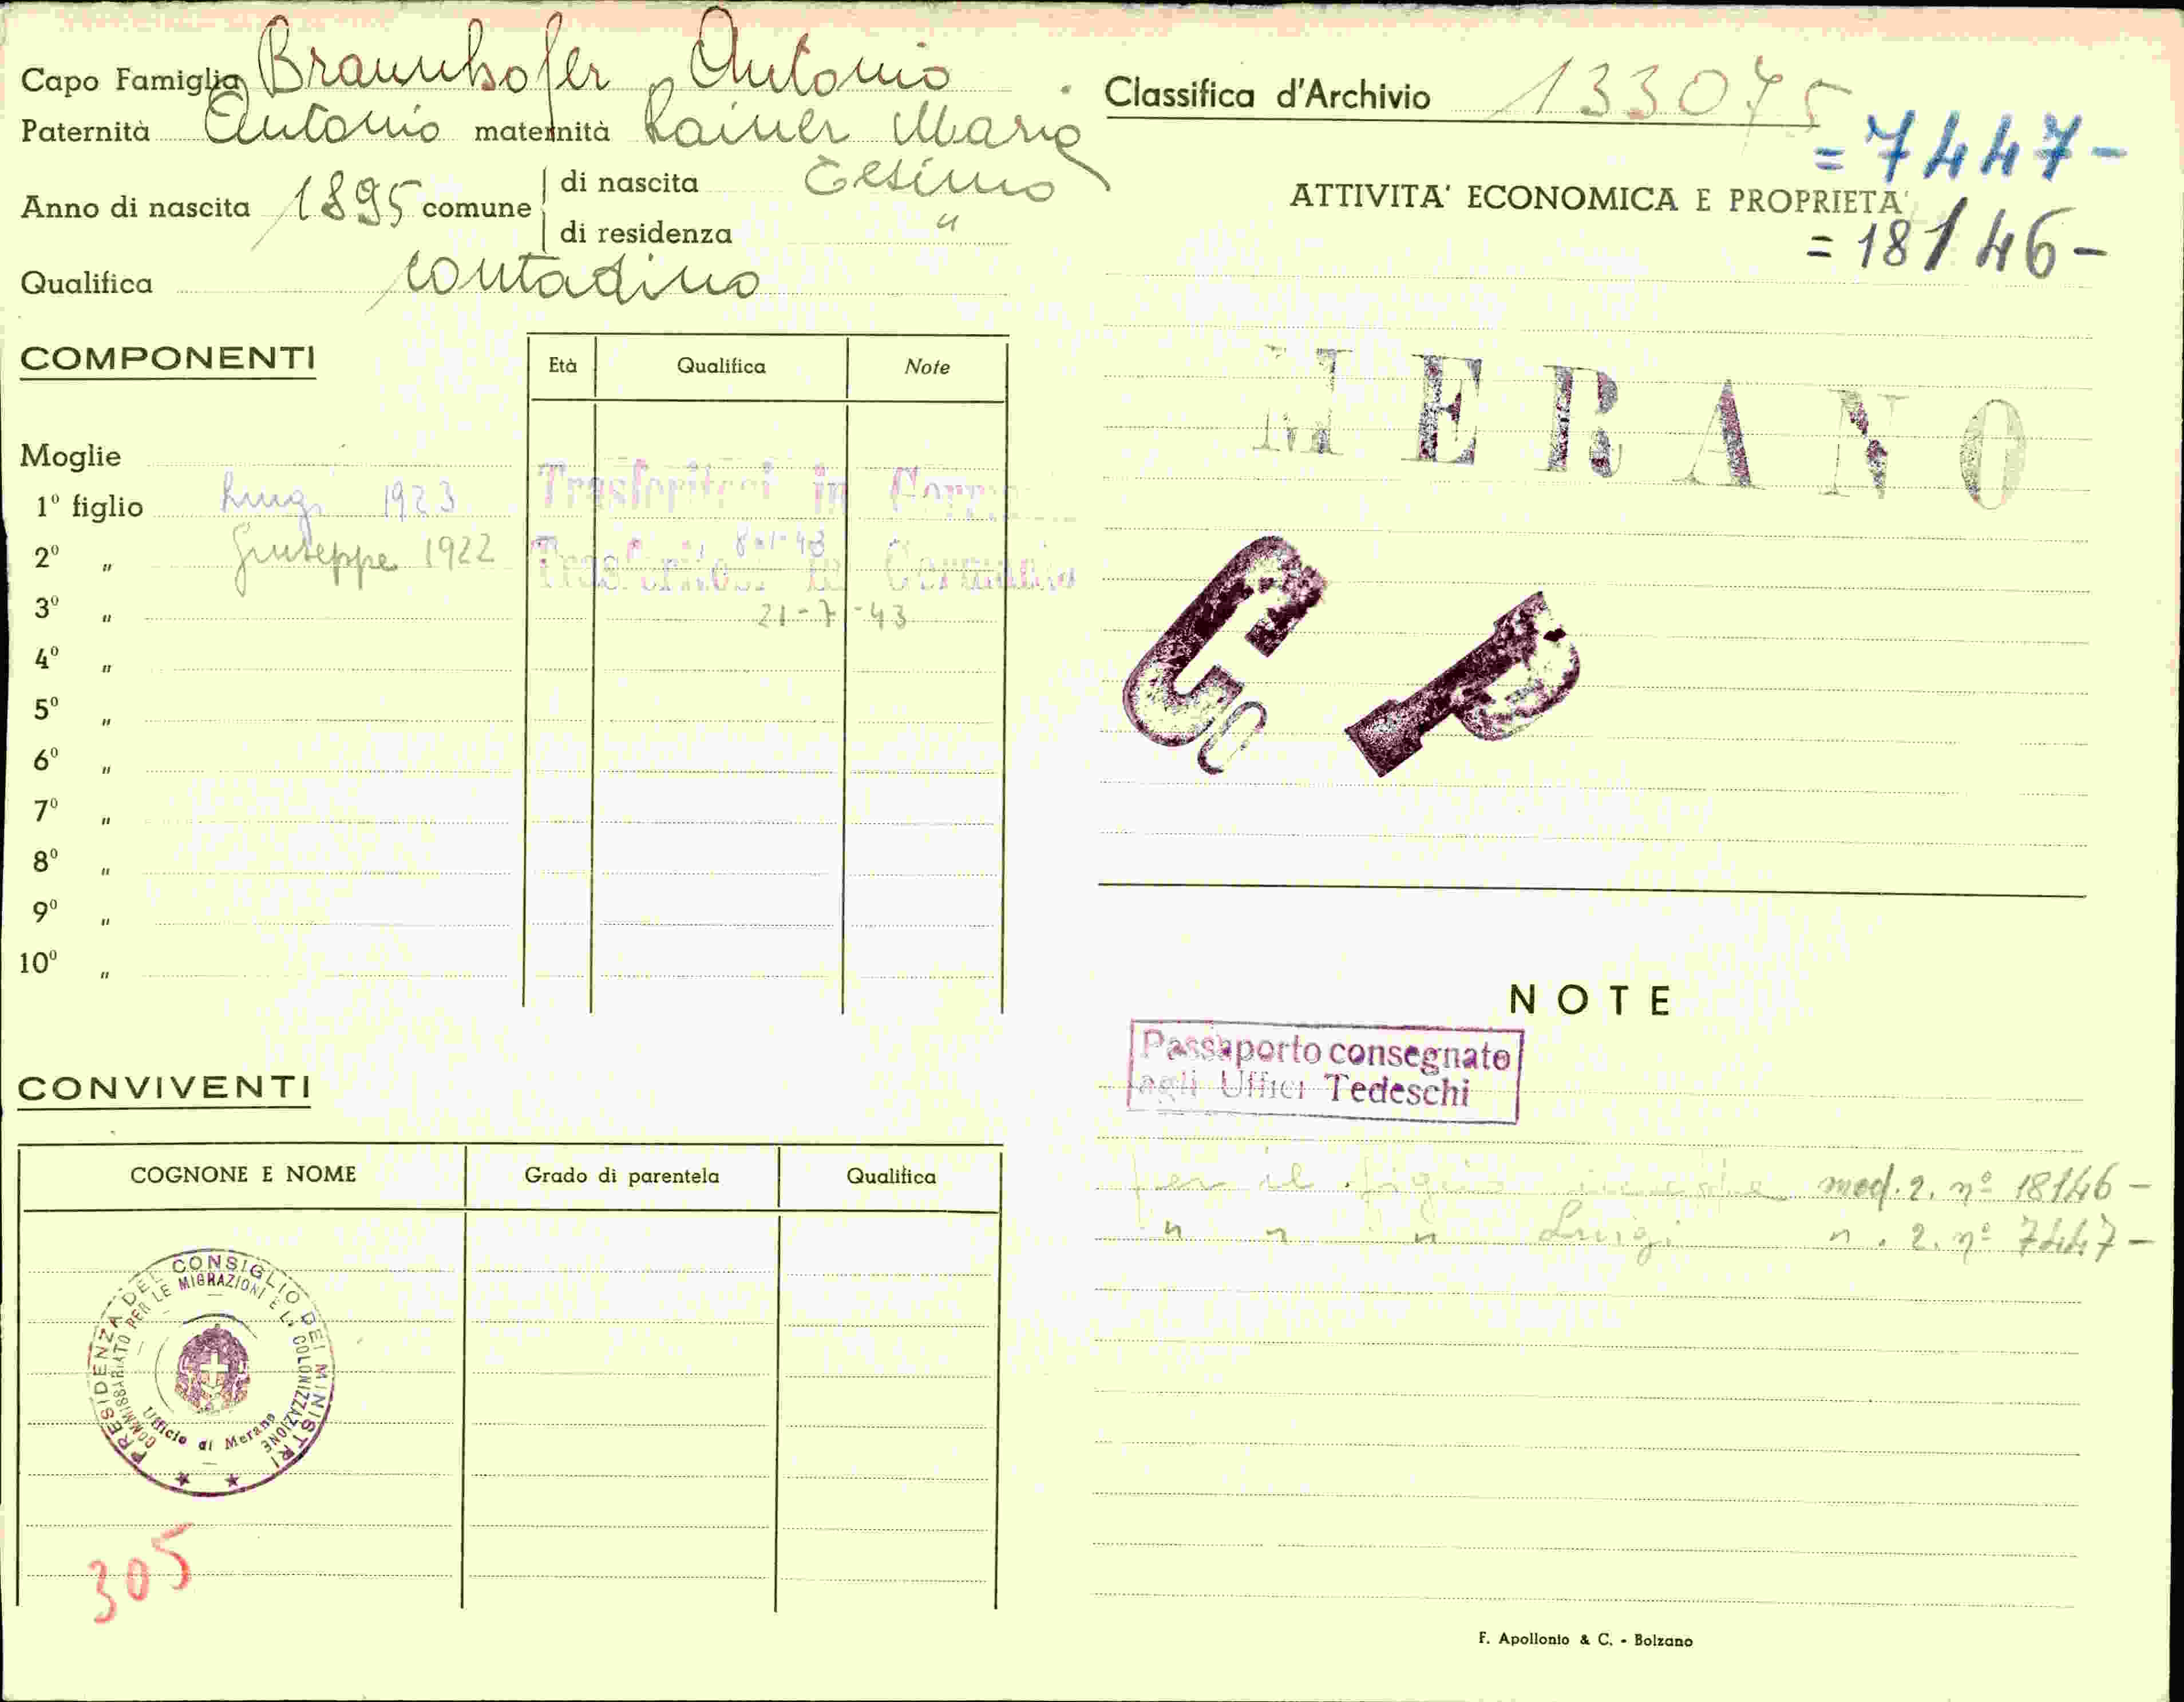 Capo Famiglia Braunhofer Antonio
Paternità Antonio maternità Rainer Maria
Anno di nascita 1895 comune di nascita Tesimo
di residenza "
Qualifica contadino
COMPONENTI
Età Qualifica Note
Moglie
1º figlio Luigi 1923 Trasferitosi in
8-1-43
2º " Giuseppe 1922 Trasferitosi in Germania
3º " 21-7-43
4º "
5º "
6º "
7º "
8º "
9º "
10º "
CONVIVENTI
COGNONE E NOME Grado di parentela Qualifica
PRESIDENZA DEL CONSIGLIO DEI MINISTRI
COMMISSARIATO PER LE MIGRAZIONI E LA COLONIZZAZIONE
Ufficio di Merano
305
Classifica d'Archivio 133075
= 7447 -
ATTIVITA' ECONOMICA E PROPRIETA'
= 18146 -
MERANO
C P
NOTE
Passaporto consegnato
agli Uffici Tedeschi
per il figlio mod. 2. nº 18146 -
" " " Luigi " . 2. nº 7447 -
F. Apollonio & C. - Bolzano